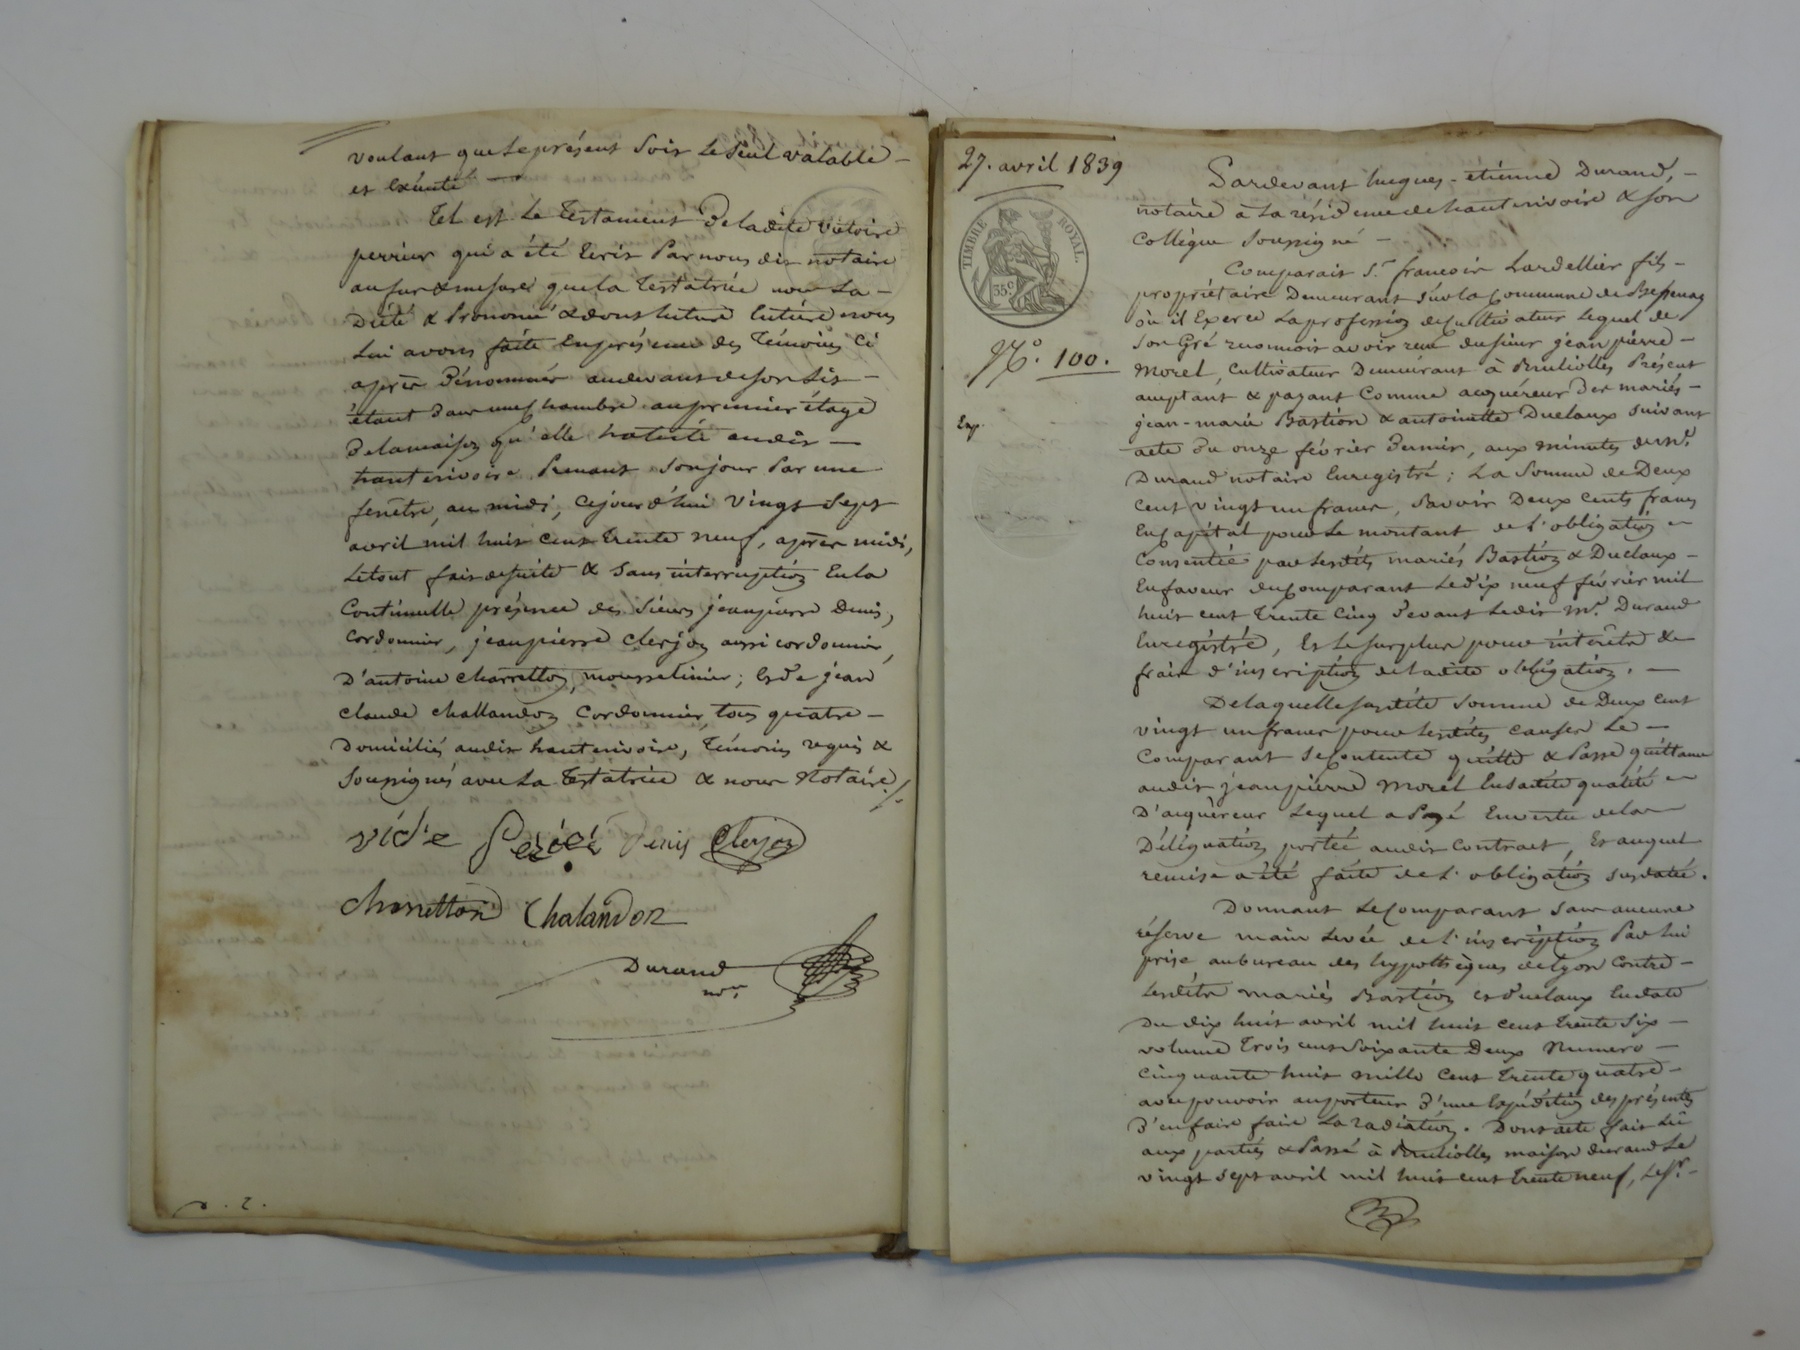 voulant que le présent soit le seul valable –
et exécuté —
Tel est le Testament de la dite victoire
perrier qui a été écrit Par nous dit notaire
au fur & mesure que la Testatrice nous l'a –
Dicté & Prononcé & dont lecture entière nous
lui avons faite en présence des Témoins ci
après Dénommés au devant de son lit –
étant dans une chambre au premier étage
De la maison qu'elle habite audit —
hauterivoire Prenant son jour Par une
fenêtre, au midi, cejourd'hui Vingt Sept
avril mil huit cent trente neuf, après midi,
Le tout fait de suite & sans interruption En la
Continuelle présence des Sieurs jean pierre Denis,
Cordonnier, jean pierre Clerjon aussi cordonnier,
D'antoine charretton, mousselinier; Et De jean
Claude challandon Cordonnier, tous quatre –
Domiciliés audit hauterivoire, Témoins requis &
Soussignés avec La Testatrice & nous Notaire ./.
victe Denis Clerjon
charretton Chalandon
Durand
nore
n. 2.
27. avril 1839
TIMBRE ROYAL.
35c
No. 100.
Exp.
Pardevant hugues-étienne Durand, –
notaire à la résidence de hauterivoire & son
Collègue soussigné –
Comparait Sr. françois Lardellier fils –
propriétaire Demeurant sur la Commune de Bessenay
où il Exerce La profession de Cultivateur Lequel de
son Gré reconnoit avoir reçu du sieur jean pierre –
Morel, Cultivateur Demeurant à Brullioles Présent
acceptant & payant Comme acquéreur Des mariés –
jean-marie Bastion & antoinette Duclaux suivant
acte du onze février Dernier, aux minutes de Me.
Durand notaire Enregistré; La Somme de Deux
Cent vingt un francs, savoir Deux Cents francs
En Capital pour Le montant de l'obligation –
Consentie par lesdits mariés Bastion & Duclaux –
En faveur du Comparant Le dix neuf février mil
huit cent Trente Cinq Devant Ledit Me. Durand
Enregistré, Et Le surplus pour intérêts &
frais d'inscription de ladite obligation. —
De laquelle susdite somme de Deux cent
vingt un francs pour lesdites causes Le —
Comparant se Contente quitte & Passe quittance
audit jean pierre Morel En sadite qualité –
D'acquéreur Lequel a Payé En vertu de la
Délégation portée audit Contract, Et auquel
remise a été faite de l'obligation susdatée.
Donnant Le Comparant sans aucune
réserve main levée de l'inscription Par lui
prise au bureau des hypothèques de lyon Contre –
Lesdits mariés Bastion et Duclaux En date
Du dix huit avril mil huit cent trente Six –
volume Trois cent Soixante Deux Numero –
Cinquante huit mille Cent trente quatre –
avec pouvoir au porteur D'une Expédition des présentes
D'en faire faire La radiation. Dont acte fait Lu
aux parties & Passé à Brullioles maison durand Le
vingt sept avril mil huit cent trente neuf, Le Sr. –